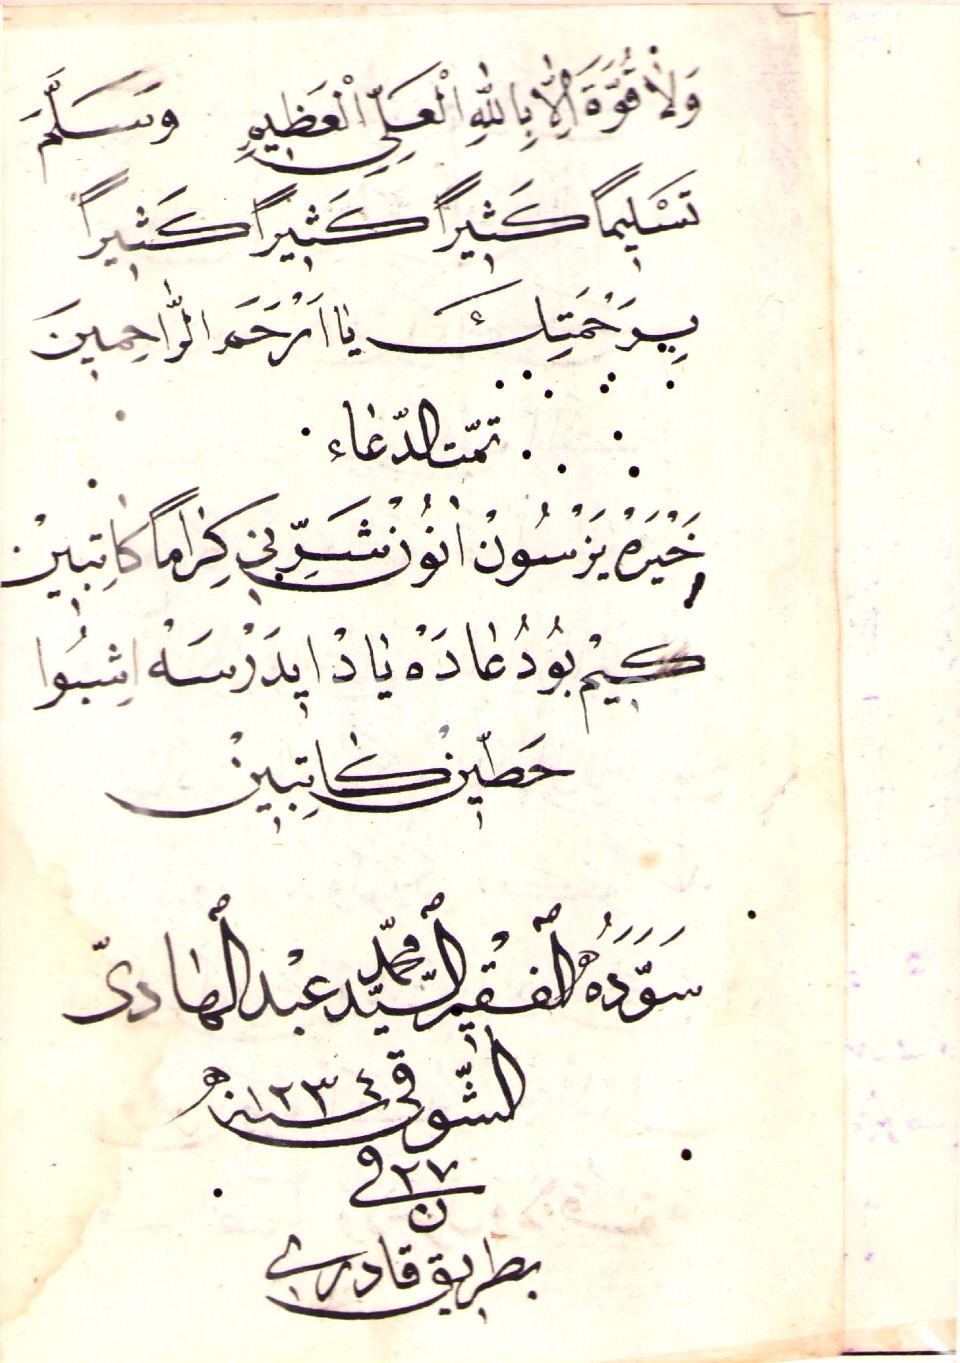 وَلَا قُوَّةَ اِلَّا بِاللّٰهِ الْعَلِيِّ الْعَظِيمِ وَسَلَّمَ
تَسْلِيمًا كَثِيرًا كَثِيرًا كَثِيرًا
بِرَحْمَتِكَ يَا اَرْحَمَ الرَّاحِمِينَ
تمّت الدّعاء
خَيْرَهْ يَزْسُونْ اٰنُونْ شَرِّنِي كِرَامًا كَاتِبِينْ
كِيمْ بُو دُعَادَهْ يَادْ ايدَرْسَهْ اِشْبُوا
حَطِّينْ كَاتِبِينْ
سَوَّدَهُ الْفَقِيرُ السَّيِّد محمّد عَبْد الْهَادِى
الشّوقى سنة ١٢٣٤
فى ٢٧ ن
بطريق قادرى